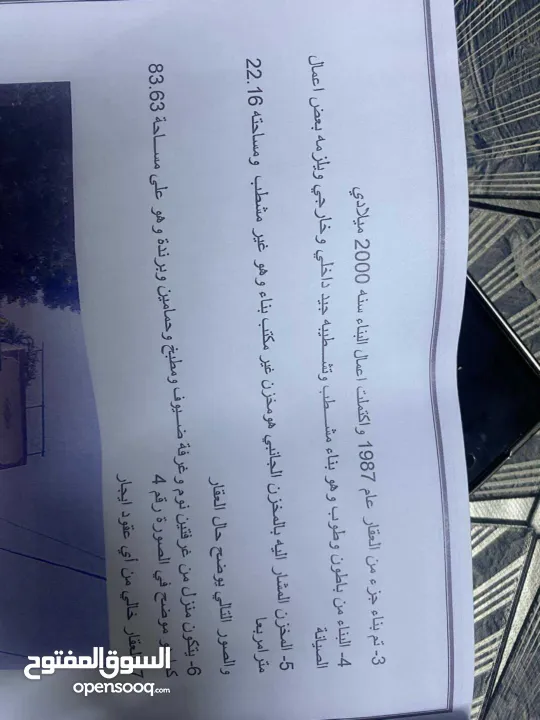 3- تم بناء جزء من العقار عام 1987 واكتملت اعمال البناء سنه 2000 ميلادي
4- البناء من باطون وطوب وهو بناء مشطب وتشطيبه جيد داخلي وخارجي ويلزمه بعض اعمال
الصيانة
5- المخزن المشار اليه بالمخزن الجانبي هومخزن غير مكتب بناء وهو غير مشطب ومساحته 22.16
مترامربعا
والصور التالي يوضح حال العقار
6- يتكون منزل من غرفتين نوم وغرفة ضيوف ومطبخ وحمامين وبرندة وهو على مساحة 83.63
موضح في الصورة رقم 4
العقار خالي من أي عقود ايجار
السوق المفتوح
opensooq.com